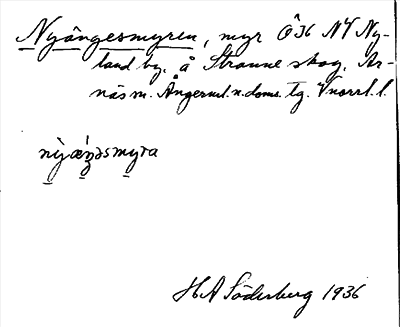 Nyängesmyren, myr Ö36 NV Ny-
land by. å Stranne skog. Ar-
näs m. Ångerml. n. doms. tg. Vnorrl. l.
nỳæŋəsmyra
H A Söderberg 1936